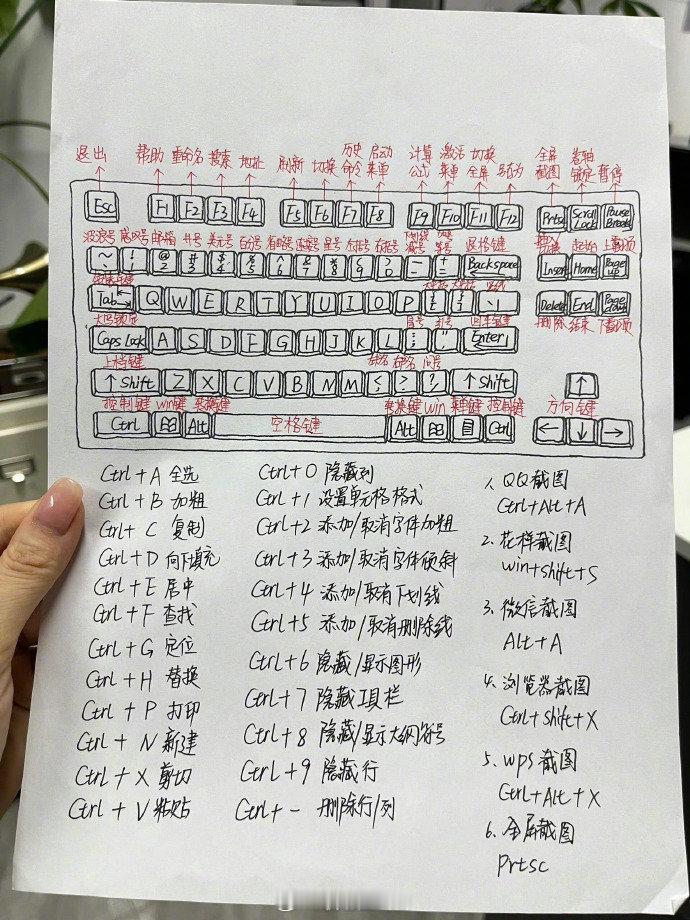 退出 帮助 重命名 搜索 地址 刷新 切换 历史命令 启动菜单 计算公式 激活菜单 切换全屏 另存为 全屏截图 卷轴锁定 暂停
Esc F1 F2 F3 F4 F5 F6 F7 F8 F9 F10 F11 F12 Prtsc Scroll Lock Pause Break
波浪号 感叹号 井号 美元号 百分号 星号 左括号 右括号 退格键 起始 上翻页
~ ! 1 @ 2 # 3 $ 4 % 5 ^ 6 & 7 * 8 ( 9 ) 0 - + = Backspace Insert Home Page up
Tab Q W E R T Y U I O P \ Delete End Page down
大写锁定 冒号 引号 回车键 删除 结束 下翻页
Caps Lock A S D F G H J K L Enter
上档键 问号
↑ Shift Z X C V B N M < > ? ↑ Shift ↑
控制键 win键 空格键 win 菜单键 控制键 方向键
Ctrl Alt Alt Ctrl ← ↓ →
Ctrl + A 全选
Ctrl + B 加粗
Ctrl + C 复制
Ctrl + D 向下填充
Ctrl + E 居中
Ctrl + F 查找
Ctrl + G 定位
Ctrl + H 替换
Ctrl + P 打印
Ctrl + N 新建
Ctrl + X 剪切
Ctrl + V 粘贴
Ctrl + 0 隐藏列
Ctrl + 1 设置单元格格式
Ctrl + 2 添加/取消字体加粗
Ctrl + 3 添加/取消字体倾斜
Ctrl + 4 添加/取消下划线
Ctrl + 5 添加/取消删除线
Ctrl + 6 隐藏/显示图形
Ctrl + 7 隐藏工具栏
Ctrl + 8 隐藏/显示大纲符号
Ctrl + 9 隐藏行
Ctrl + - 删除行/列
1、QQ截图
Ctrl+Alt+A
2、花样截图
win+shift+S
3、微信截图
Alt+A
4、浏览器截图
Ctrl+shift+X
5、wps截图
Ctrl+Alt+X
6、全屏截图
Prtsc